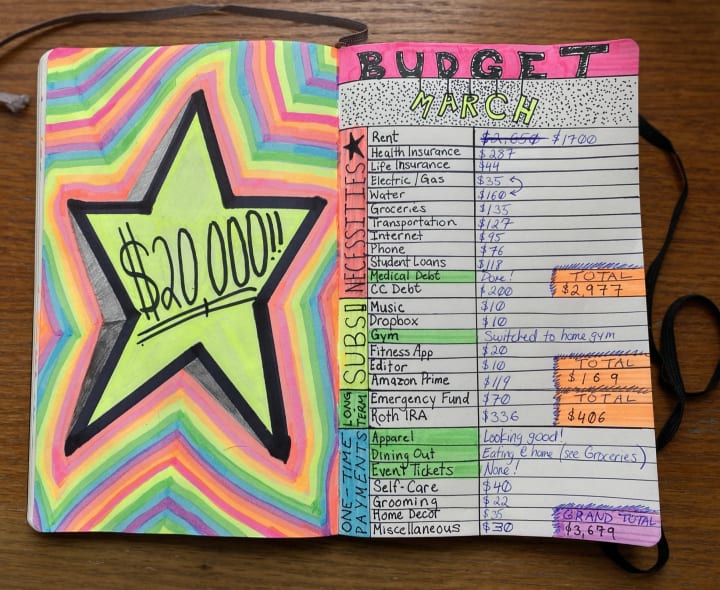 $20,000!!
BUDGET
MARCH
NECESSITIES
Rent $2,650 $1700
Health Insurance $287
Life Insurance $44
Electric/Gas $35
Water $160
Groceries $135
Transportation $127
Internet $95
Phone $76
Student Loans $118
Medical Debt Done! TOTAL
CC Debt $200 $2,977
SUBS!!
Music $10
Dropbox $10
Gym Switched to home gym
Fitness App $20
Editor $10 TOTAL
Amazon Prime $119 $169
LONG TERM
Emergency Fund $70 TOTAL
Roth IRA $336 $406
ONE-TIME PAYMENTS
Apparel Looking good!
Dining Out Eating @ home (see Groceries)
Event Tickets None!
Self-Care $40
Grooming $22
Home Decor $35 GRAND TOTAL
Miscellaneous $30 $3,679